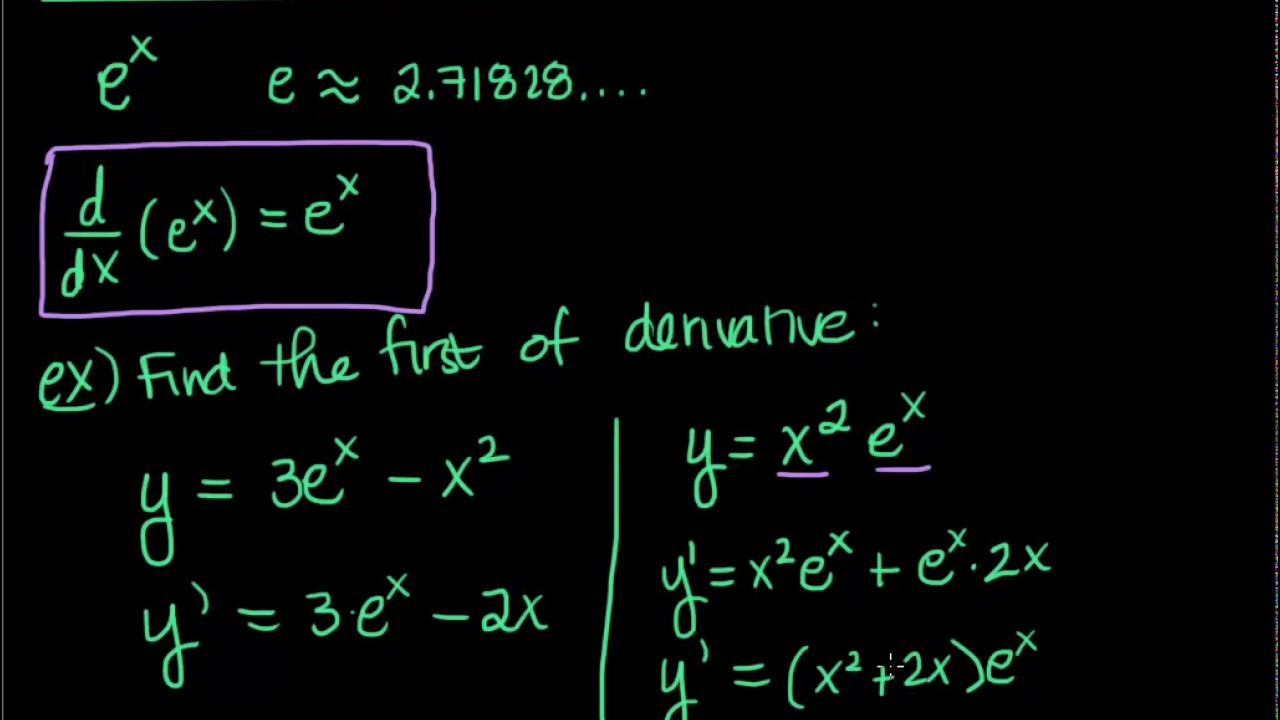 eˣ e ≈ 2.71828....
d/dx (eˣ) = eˣ
ex) Find the first of derivative:
y = 3eˣ - x²
y' = 3·eˣ - 2x
y = x² eˣ
y' = x²eˣ + eˣ·2x
y' = (x²+2x)eˣ